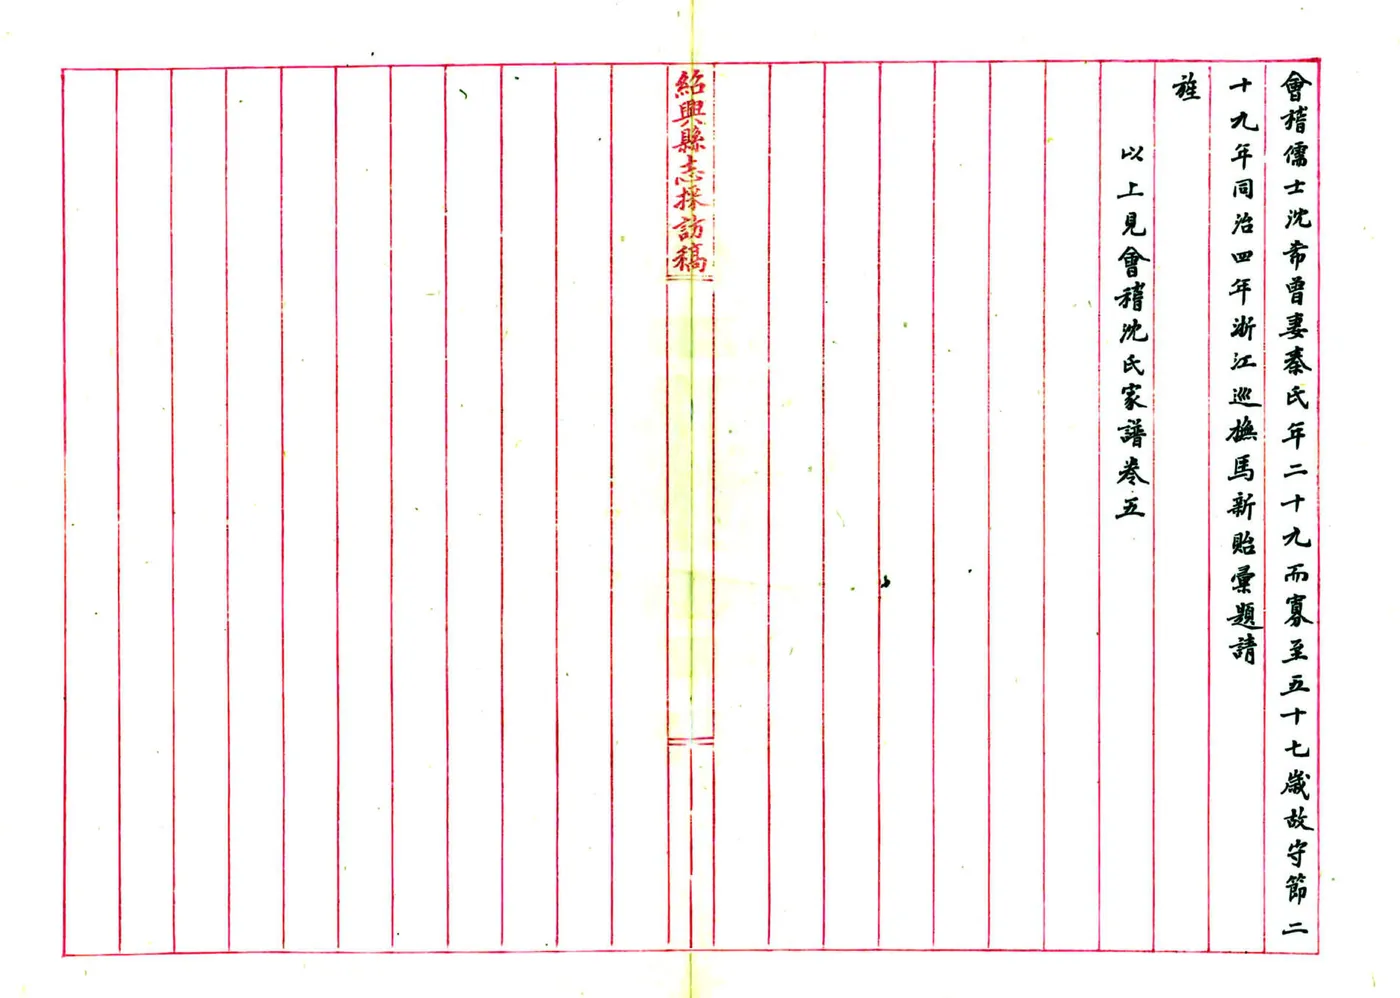 會稽儒士沈希曾妻秦氏年二十九而寡至五十七歲故守節二
十九年同治四年浙江巡撫馬新貽彙題請
旌
以上見會稽沈氏家譜卷五
紹興縣志採訪稿